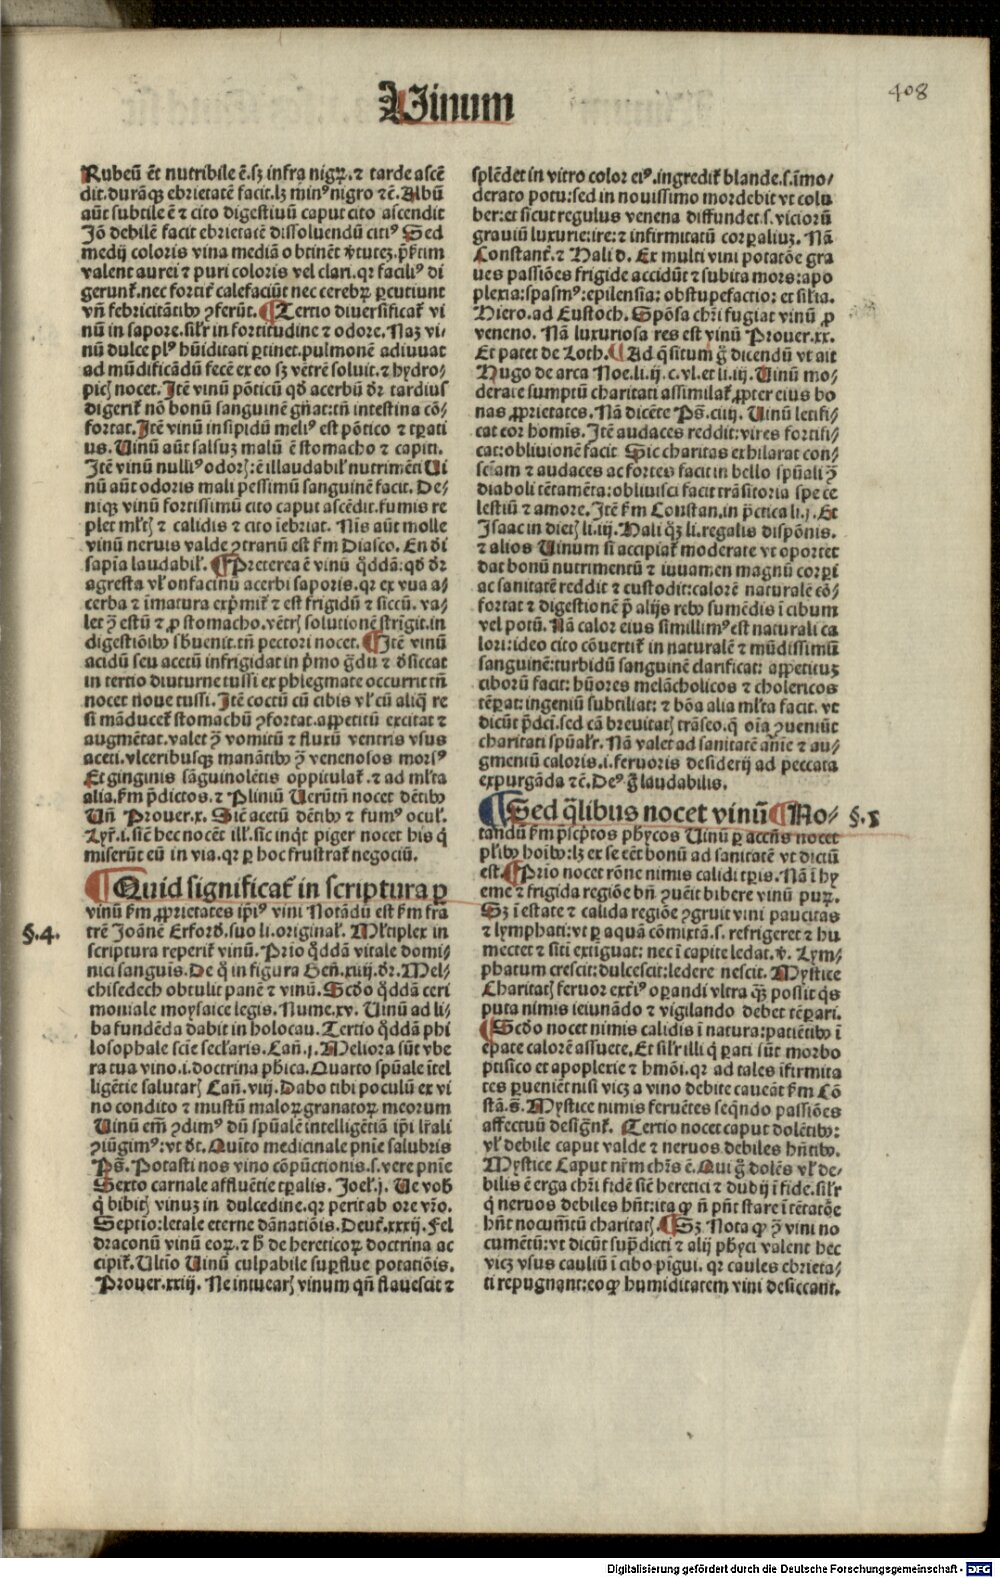 Uinum
408
Rubeū ēt nutribile ē.sꝫ infra nigꝝ.⁊ tarde ascē
dit.durāqꝫ ebrietatē facit.lꝫ minꝰ nigro ⁊ē. Albū
aūt subtile ē ⁊ cito digestiuū caput cito ascendit
Jō debilē facit ebrietatē dissoluendū citiꝰ Sed
medij coloris vina mediā obtinēt v̓tutez. p̄ẜtim
valent aurei ⁊ puri coloris vel clari. qꝛ faciliꝰ di
gerunt̄. nec fortit̄ calefaciūt nec cerebꝝ ꝑcutiunt
vn̄ febricitātibꝰ ꝯferūt. ¶Tertio diuersificat̄ vi
nū in sapore. silr̄ in fortitudine ⁊ odore. Naꝫ vi-
nū dulce plꝰ hūiditati ꝑtinet. pulmonē adiuuat
ad mūdificādū fecē ex eo sꝫ vētrē soluit. ⁊ hydro-
picꝭ nocet. Jtē vinū pōticū qđ acerbū dr̄ tardius
digerit̄ nō bonū sanguinē gn̄at: tn̄ intestina cō-
fortat. Jtē vinū insipidū meliꝰ est pōtico ⁊ tꝑati
us. Uinū aūt salsuꝫ malū ē stomacho ⁊ capiti.
Jtē vinū nulliꝰ odorꝭ: ē illaudabil̓ nutrimēti Ui
nū aūt odoris mali pessimū sanguinē facit. De-
niqꝫ vinū fortissimū cito caput ascēdit. fumis re
plet ml̓tꝭ ⁊ calidis ⁊ cito īebriat. Nis aūt molle
vinū neruis valde ꝯtrariū est ẜm Diasco. En đi
sapia laudabil̓. ¶Preterea ē vinū qđdā: qđ dr̄
agresta vl̓ onfacinū acerbi saporis. qꝛ ex vua a-
cerba ⁊ īmatura exp̄mit̄ ⁊ est frigidū ⁊ siccū. va-
let ꝯ̄ estū ⁊ ꝓ stomacho. vētrꝭ solutionē strīgit. in
digestiōibꝰ sb̓uenit. tn̄ pectori nocet. ¶Jtē vinū
acidū seu acetū infrigidat in p̄mo ḡdu ⁊ đsiccat
in tertio diuturne tussi ex phlegmate occurrit tn̄
nocet noue tussi. Jtē coctū cū cibis vl̓ cū aliq̄ re
si māducet̄ stomachū ꝯfortat. appetitū excitat ⁊
augmētat. valet ꝯ̄ vomitū ⁊ fluxū ventris vsus
aceti. vlceribusqꝫ manātibꝰ ꝯ̄ venenosos morsꝰ
Et ginginis sāguinolētis oppitulat̄. ⁊ ad ml̓ta
alia. ẜm p̄dictos. ⁊ Pliniū Uerūtn̄ nocet dētibꝰ
Un̄ Prouer.x. Sič acetū dētibꝰ ⁊ fumꝰ ocul̓.
Lyr̄.i. sič hec nocēt ill̓. sic inq̄t piger nocet his q̇
miserūt eū in via. qꝛ ꝑ hoc frustrat̄ negociū.
¶Quid significat̄ in scriptura ꝑ
vinū ẜm ꝓprietates ip̄iꝰ vini Notādū est ẜm fra
§.4.
trē Joānē Erforđ. suo li. original̓. Ml̓tiplex in
scriptura reperit̄ vinū. Prīo qđdā vitale domi-
nici sanguīs. De q̄ in figura Gen̄.xiiij. dr̄. Mel-
chisedech obtulit panē ⁊ vinū. Scđo qđdā ceri
moniale moysaice legis. Nume.xv. Uinū ad li-
ba fundēda dabit in holocau. Tertio qđdā phi
losophale scīe secl̓aris. Can̄.j. Meliora sūt vbe
ra tua vino .i. doctrina ph̄ica. Quarto spūale ītel
ligētie salutarꝭ Can̄.viij. Dabo tibi poculū ex vi
no condito ⁊ mustū maloꝝ granatoꝝ meorum
Uinū em̄ ꝯdimꝰ dū spūalē intelligētiā ip̄i lr̄ali
ꝯiūgimꝰ: vt dr̄. Quīto medicinale pnīe salubris
Ps̄. Potasti nos vino cōpūctionis .s. vere pnīe
Sexto carnale affluētie tꝑalis. Joel.j. Ue vob̓
q̇ bibitꝭ vinuꝫ in dulcedine. qꝛ perit ab ore vr̄o.
Septīo: letale eterne dānatiōis. Deut̓.xxxij. Fel
draconū vinū eoꝝ. ⁊ h̓ de hereticoꝝ doctrina ac
cipit̄. Ultīo Uinū culpabile suꝑflue potatiōis.
Prouer.xxiij. Ne intuearꝭ vinum qn̄ flauescit ⁊
splēdet in vitro color eiꝰ. ingredit̄ blande .s. īmo-
derato potu: sed in nouissimo mordebit vt colu
ber: et sicut regulus venena diffundet .s. viciorū
grauiū luxurie: ire: ⁊ infirmitatū corꝑaliuꝫ. Nā
Constant̄. ⁊ Hali đ. Ex multi vini potatōe gra
ues passiōes frigide accidūt ⁊ subita mors: apo
plexia: spasmꝰ: epilensia: obstupefactio: et sil̓ia.
Hiero. ad Eustoch. Spōsa chr̄i fugiat vinū ꝓ
veneno. Nā luxuriosa res est vinū Prouer.xx.
Et patet de Loth. ¶Ad q̄situm g̊ dicendū vt ait
Hugo de arca Noe. li.ij.c.vl. et li.iij. Uinū mo-
derate sumptū charitati assimilat̄ ꝓpter eius bo
nas ꝓprietates. Nā dicēte Ps̄.ciij. Uinū letifi-
cat cor homīs. Jtē audaces reddit: vires fortifi-
cat: obliuionē facit Sic charitas exhilarat con-
scīam ⁊ audaces ac fortes facit in bello spūali ꝯ̄
diaboli tētamēta: obliuisci facit trāsitoria spe ce
lestiū ⁊ amore. Jtē ẜm Constan. in p̄ctica li.j. Et
Jsaac in dietꝭ li.iij. Hali qꝫ li. regalis dispōnis.
⁊ alios Uinum si accipiat̄ moderate vt oportet
dat bonū nutrimentū ⁊ iuuamen magnū corꝑi
ac sanitatē reddit ⁊ custodit: calorē naturalē cō-
fortat ⁊ digestionē p̄ alijs rebꝰ sumēdis ī cibum
vel potū. Nā calor eius simillimꝰ est naturali ca
lori: ideo cito cōuertit̄ in naturalē ⁊ mūdissimū
sanguinē: turbidū sanguinē clarificat: appetituꝫ
ciborū facit: hūores melācholicos ⁊ cholericos
tēꝑat: ingeniū subtiliat: ⁊ bōa alia ml̓ta facit. vt
dicūt p̄dci̇. sed cā breuitatꝭ trāseo. q̄ oīa ꝯueniūt
charitati spūal̓r. Nā valet ad sanitatē aīe ⁊ au-
gmentū caloris .i. feruoris desiderij ad peccata
expurgāda ⁊ē. Deꝰ g̊ laudabilis.
¶Sed q̇libus nocet vinū ¶No-
§.5
tandū ẜm p̄scp̄tos phycos Uinū ꝑ accn̄s nocet
pl̓ibꝰ hoībꝰ: lꝫ ex se eēt bonū ad sanitatē vt dictū
est. ¶Prīo nocet rōne nimis calidi tꝑis. Nā ī hy
eme ⁊ frigida regiōe bn̄ ꝯuēit bibere vinū puꝝ.
Sꝫ ī estate ⁊ calida regiōe ꝯgruit vini paucitas
⁊ lymphati: vt ꝑ aquā cōmixtā .s. refrigeret ⁊ hu
mectet ⁊ siti extiguat: nec ī capite ledat. v̓. Lym-
phatum crescit: dulcescit: ledere nescit. Mystice
Charitatꝭ feruor exti̓ oꝑandi vltra qꝫ possit q̇s
puta nimis ieiunādo ⁊ vigilando debet tēꝑari.
¶Scđo nocet nimis calidis ī natura: patiētibꝰ ī
epate calorē assuete. Et sil̓r illi q̇ ꝑati sūt morbo
ptisico et apoplexie ⁊ hmōi. qꝛ ad tales īfirmita
tes ꝑueniēt nisi vicꝫ a vino debite caueāt ẜm Cō
stā.s̄. Mystice nimis feruētes seq̄ndo passiōes
affectuū design̄t̄. Tertio nocet caput dolētibꝰ:
vl̓ debile caput valde ⁊ neruos debiles hn̄tibꝰ.
Mystice Caput nr̄m chr̄s ē. Qui g̊ dolēs vl̓ de-
bilis ē erga chr̄i fidē sič heretici ⁊ dubij ī fide. sil̓r
q̇ neruos debiles hn̄t: ita ꝙ n̄ pn̄t stare ī tētatōe
hn̄t nocumētū charitatꝭ. ¶Sꝫ Nota ꝙ ꝯ̄ vini no
cumētū: vt dicūt sup̄dicti ⁊ alij phyci valent hec
vicꝫ vsus cauliū ī cibo pīgui. qꝛ caules ebrieta-
ti repugnant: eoꝙ humiditatem vini desiccant.
Digitalisierung gefördert durch die Deutsche Forschungsgemeinschaft - DFG